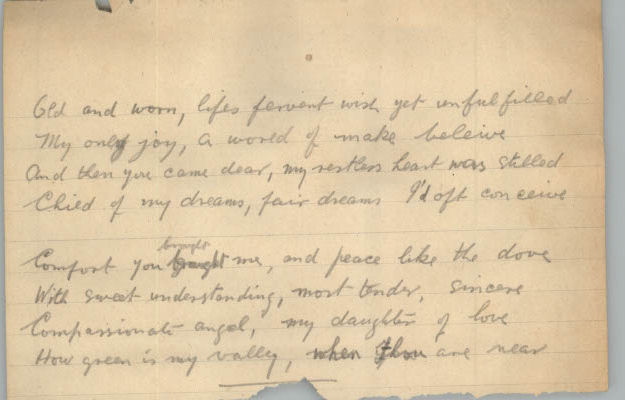 Old and worn, lifes fervent wish yet unfulfilled
My only joy, a world of make beleive
And then you came dear, my restless heart was stilled
Child of my dreams, fair dreams I'd oft conceive
brought
Comfort you brought me, and peace like the dove
With sweet understanding, most tender, sincere
Compassionate angel, my daughter of love
How green is my valley, when thou are near